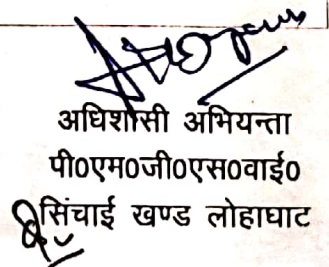 अधिशासी अभियन्ता
पी०एम०जी०एस०वाई०
सिंचाई खण्ड लोहाघाट